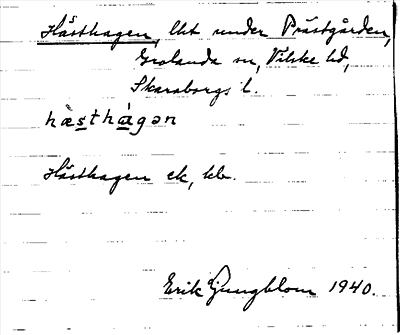 Hästhagen, lht under Prästgården,
Grolanda sn, Vilske hd,
Skaraborgs l.
hæstha̍gən
Hästhagen ek, kbr.
Erik Ljungblom 1940.